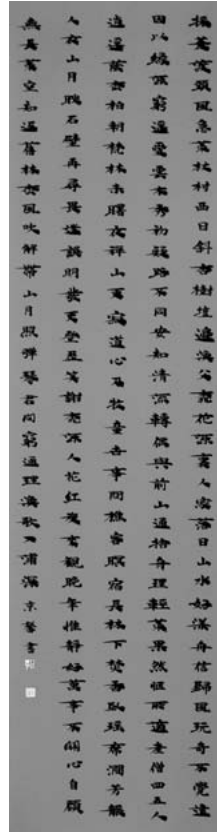 採菱渡頭風急策杖村西日斜杏樹壇邊漁父桃花源裏人家落日山水好漾舟信歸風玩奇不覺遠
因以緣源窮遙愛雲木秀初疑路不同安知清流轉偶與前山通捨舟理輕策果然愜所適老僧四五人
逍遙蔭松柏朝梵林未曙夜禪山更寂道心及牧童世事問樵客暝宿長林下焚香臥瑤席澗芳襲
人衣山月映石壁再尋畏迷誤明發更登歷笑謝桃源人花紅復來覿晚年惟靜好萬事不關心自顧
無長策空知返舊林松風吹解帶山月照彈琴君問窮通理漁歌入浦深京書